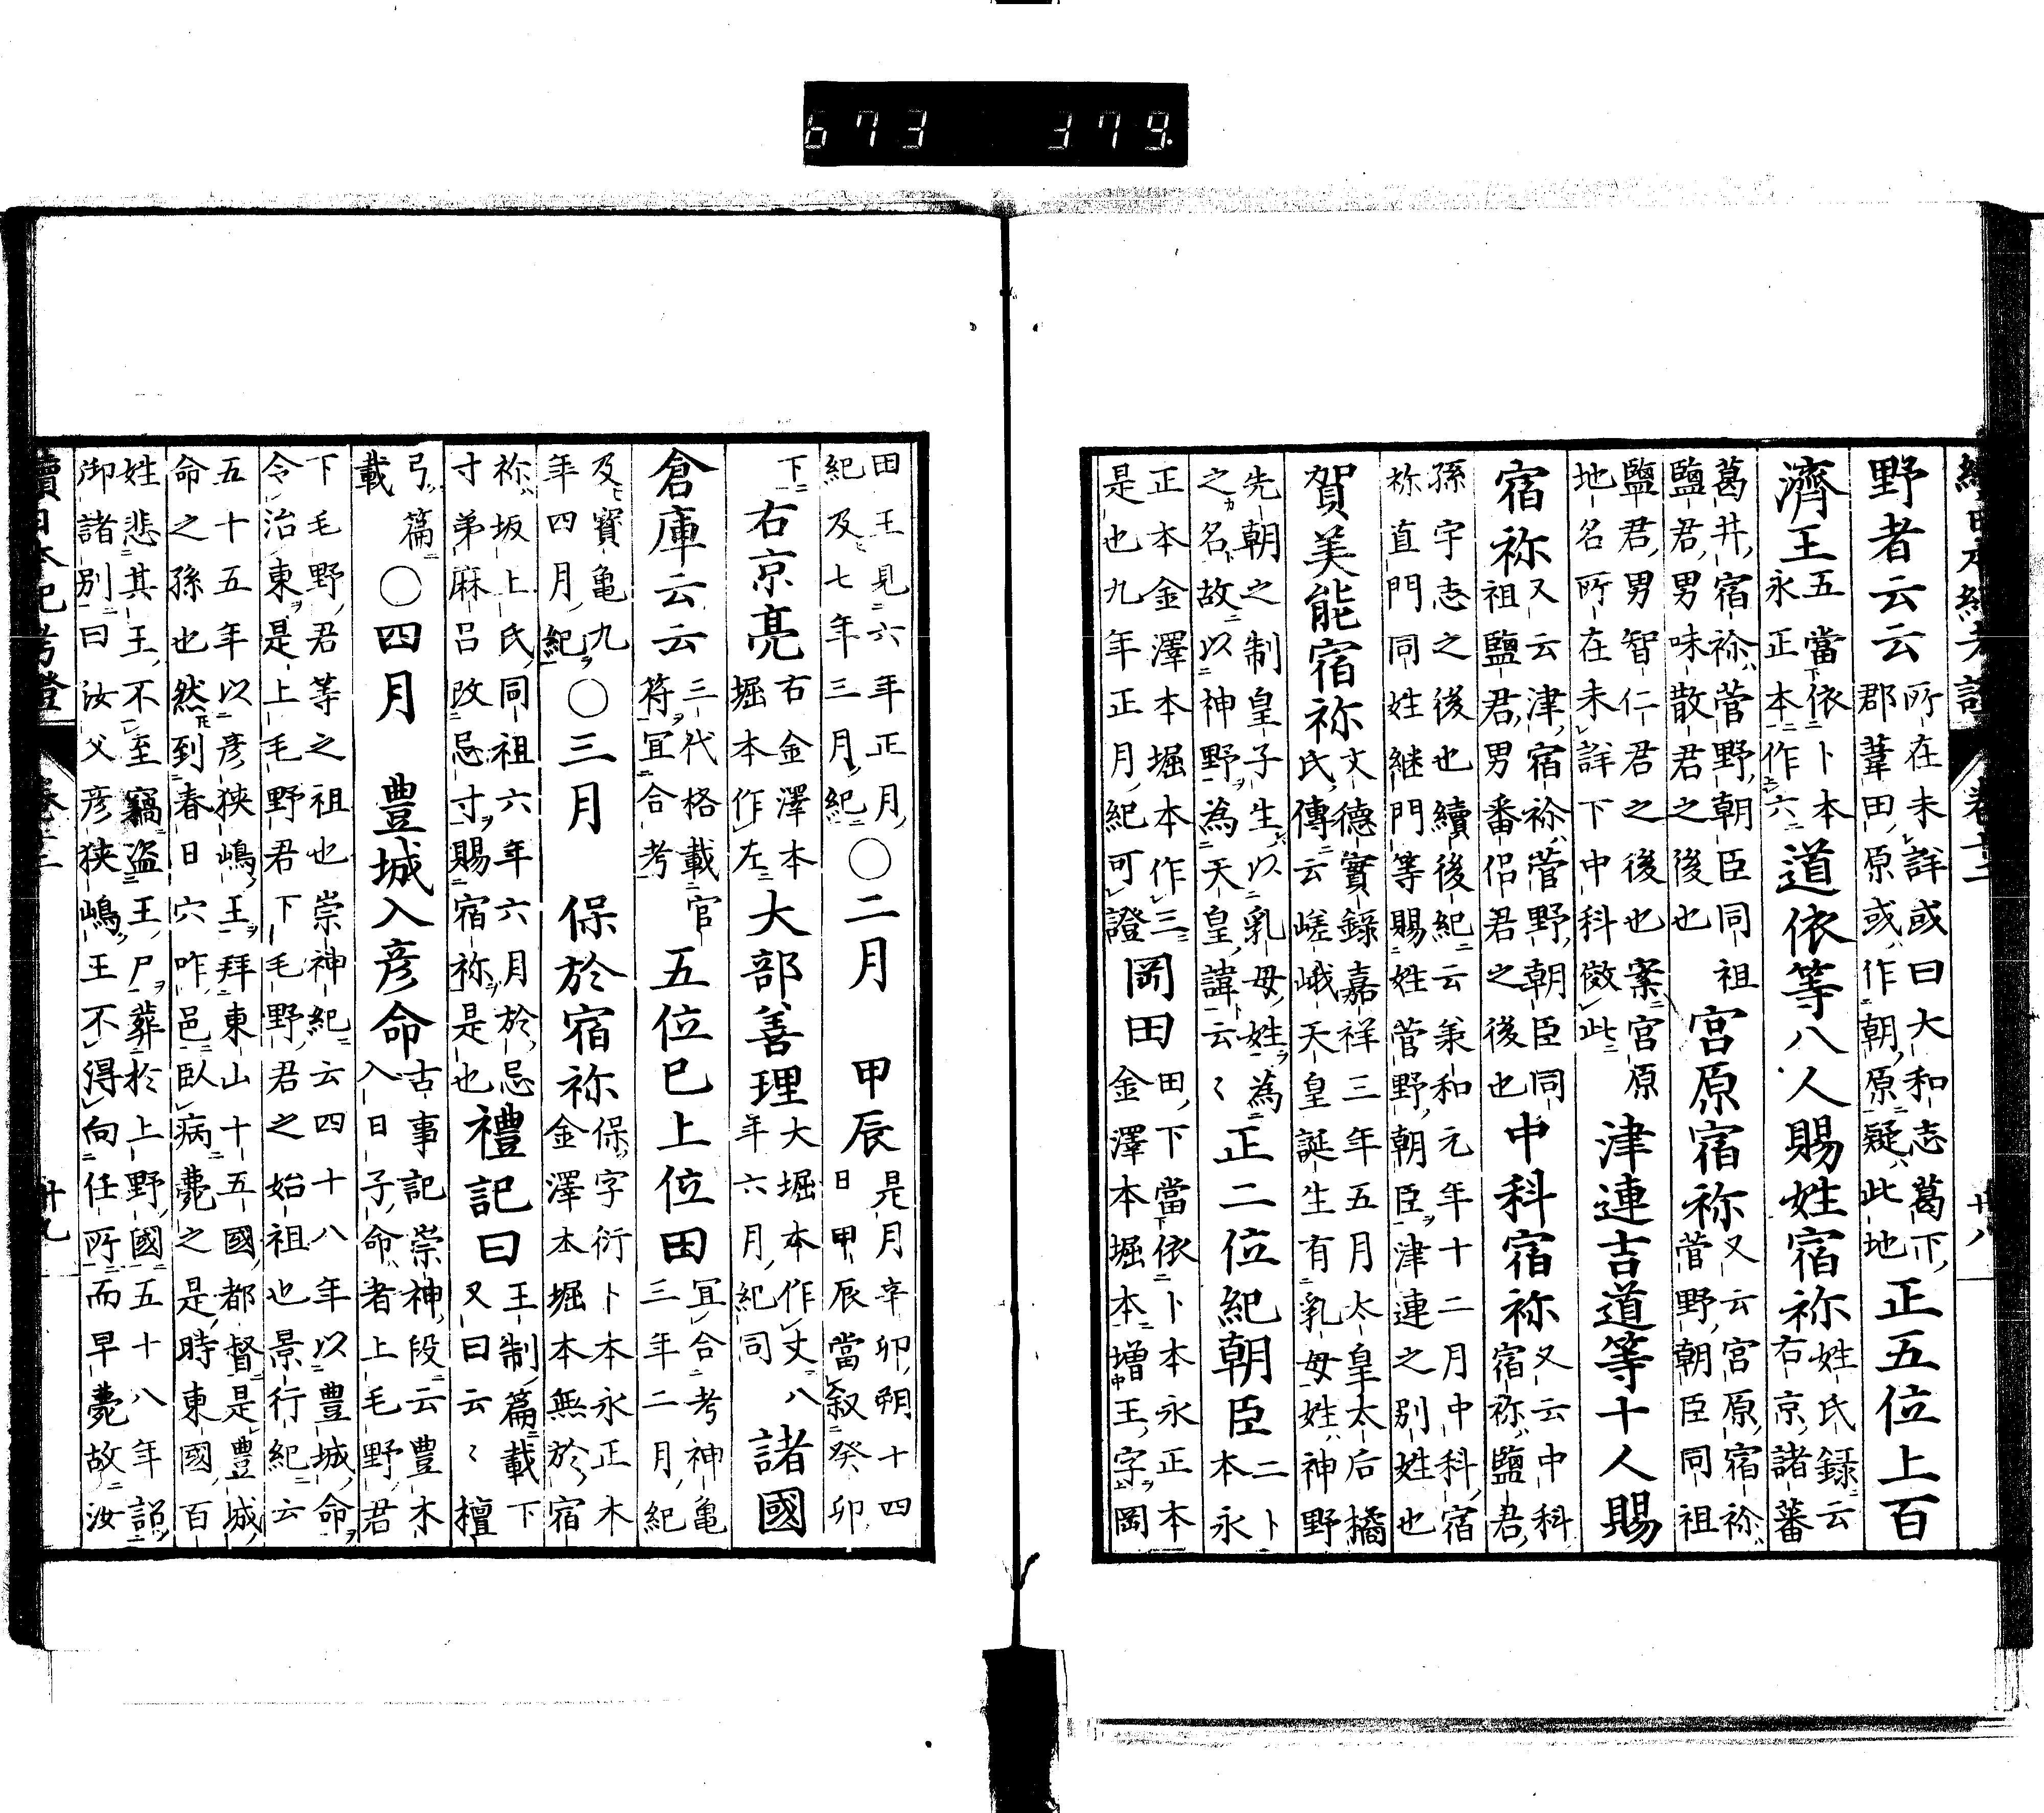 673 379
野者云云 所在未詳或曰大和志葛下 郡葦田原或作朝原疑此地 正五位上百
濟王 五當依卜本 永正本作六 道依等八人賜姓宿祢 姓氏録云 右京諸蕃
葛井宿祢菅野朝臣同祖 鹽君男味散君之後也 宮原宿祢 又云宮原宿祢 菅野朝臣同祖
鹽君男智仁君之後也案宮原 地名所在未詳下中科倣此 津連吉道等十人賜
宿祢 又云津宿祢菅野朝臣同 祖鹽君男番侶君之後也 中科宿祢 又云中科 宿祢鹽君
孫宇志之後也續後紀云承和元年十二月中科宿
祢直門同姓継門等賜姓菅野朝臣津連之別姓也
賀美能宿祢 文德實錄嘉祥三年五月太皇太后橘 氏傳云嵯峨天皇誕生有乳母姓神野
先朝之制皇子生以乳母姓為 之名故以神野為天皇諱云〻 正二位紀朝臣 二卜 本永
正本金澤本堀本作三 是也九年正月紀可證 岡田 田下當依卜本永正本 金澤本堀本增王字岡
田王見六年正月 紀及七年三月紀 〇二月 甲辰 是月辛卯朔十四 日甲辰當叙癸卯
下 右京亮 右金澤本 堀本作左 大部善理 大堀本作丈八 年六月紀同 諸國
倉庫云云 三代格載官 符宜合考 五位已上位田 宜合考神亀 三年二月紀
及寳亀九 年四月紀 〇三月 保於宿祢 保字衍卜本永正木 金澤本堀本無於宿
祢坂上氏同祖六年六月於忌 寸弟麻呂改忌寸賜宿祢是也 禮記曰 王制篇載下 又曰云〻檀
弓篇 載 〇四月 豊城入彦命 古事記崇神段云豊木 入日子命者上毛野君
下毛野君等之祖也崇神紀云四十八年以豊城命
令治東是上毛野君下毛野君之始祖也景行紀云
五十五年以彦狭嶋王拜東山十五國都督是豊城
命之孫也然到春日穴咋邑臥病薨之是時東國百
姓悲其王不至竊盗王尸葬於上野國五十八年詔
御諸別曰汝父彦狭嶋王不得向任所而早薨故汝
續日本紀考證 卅九